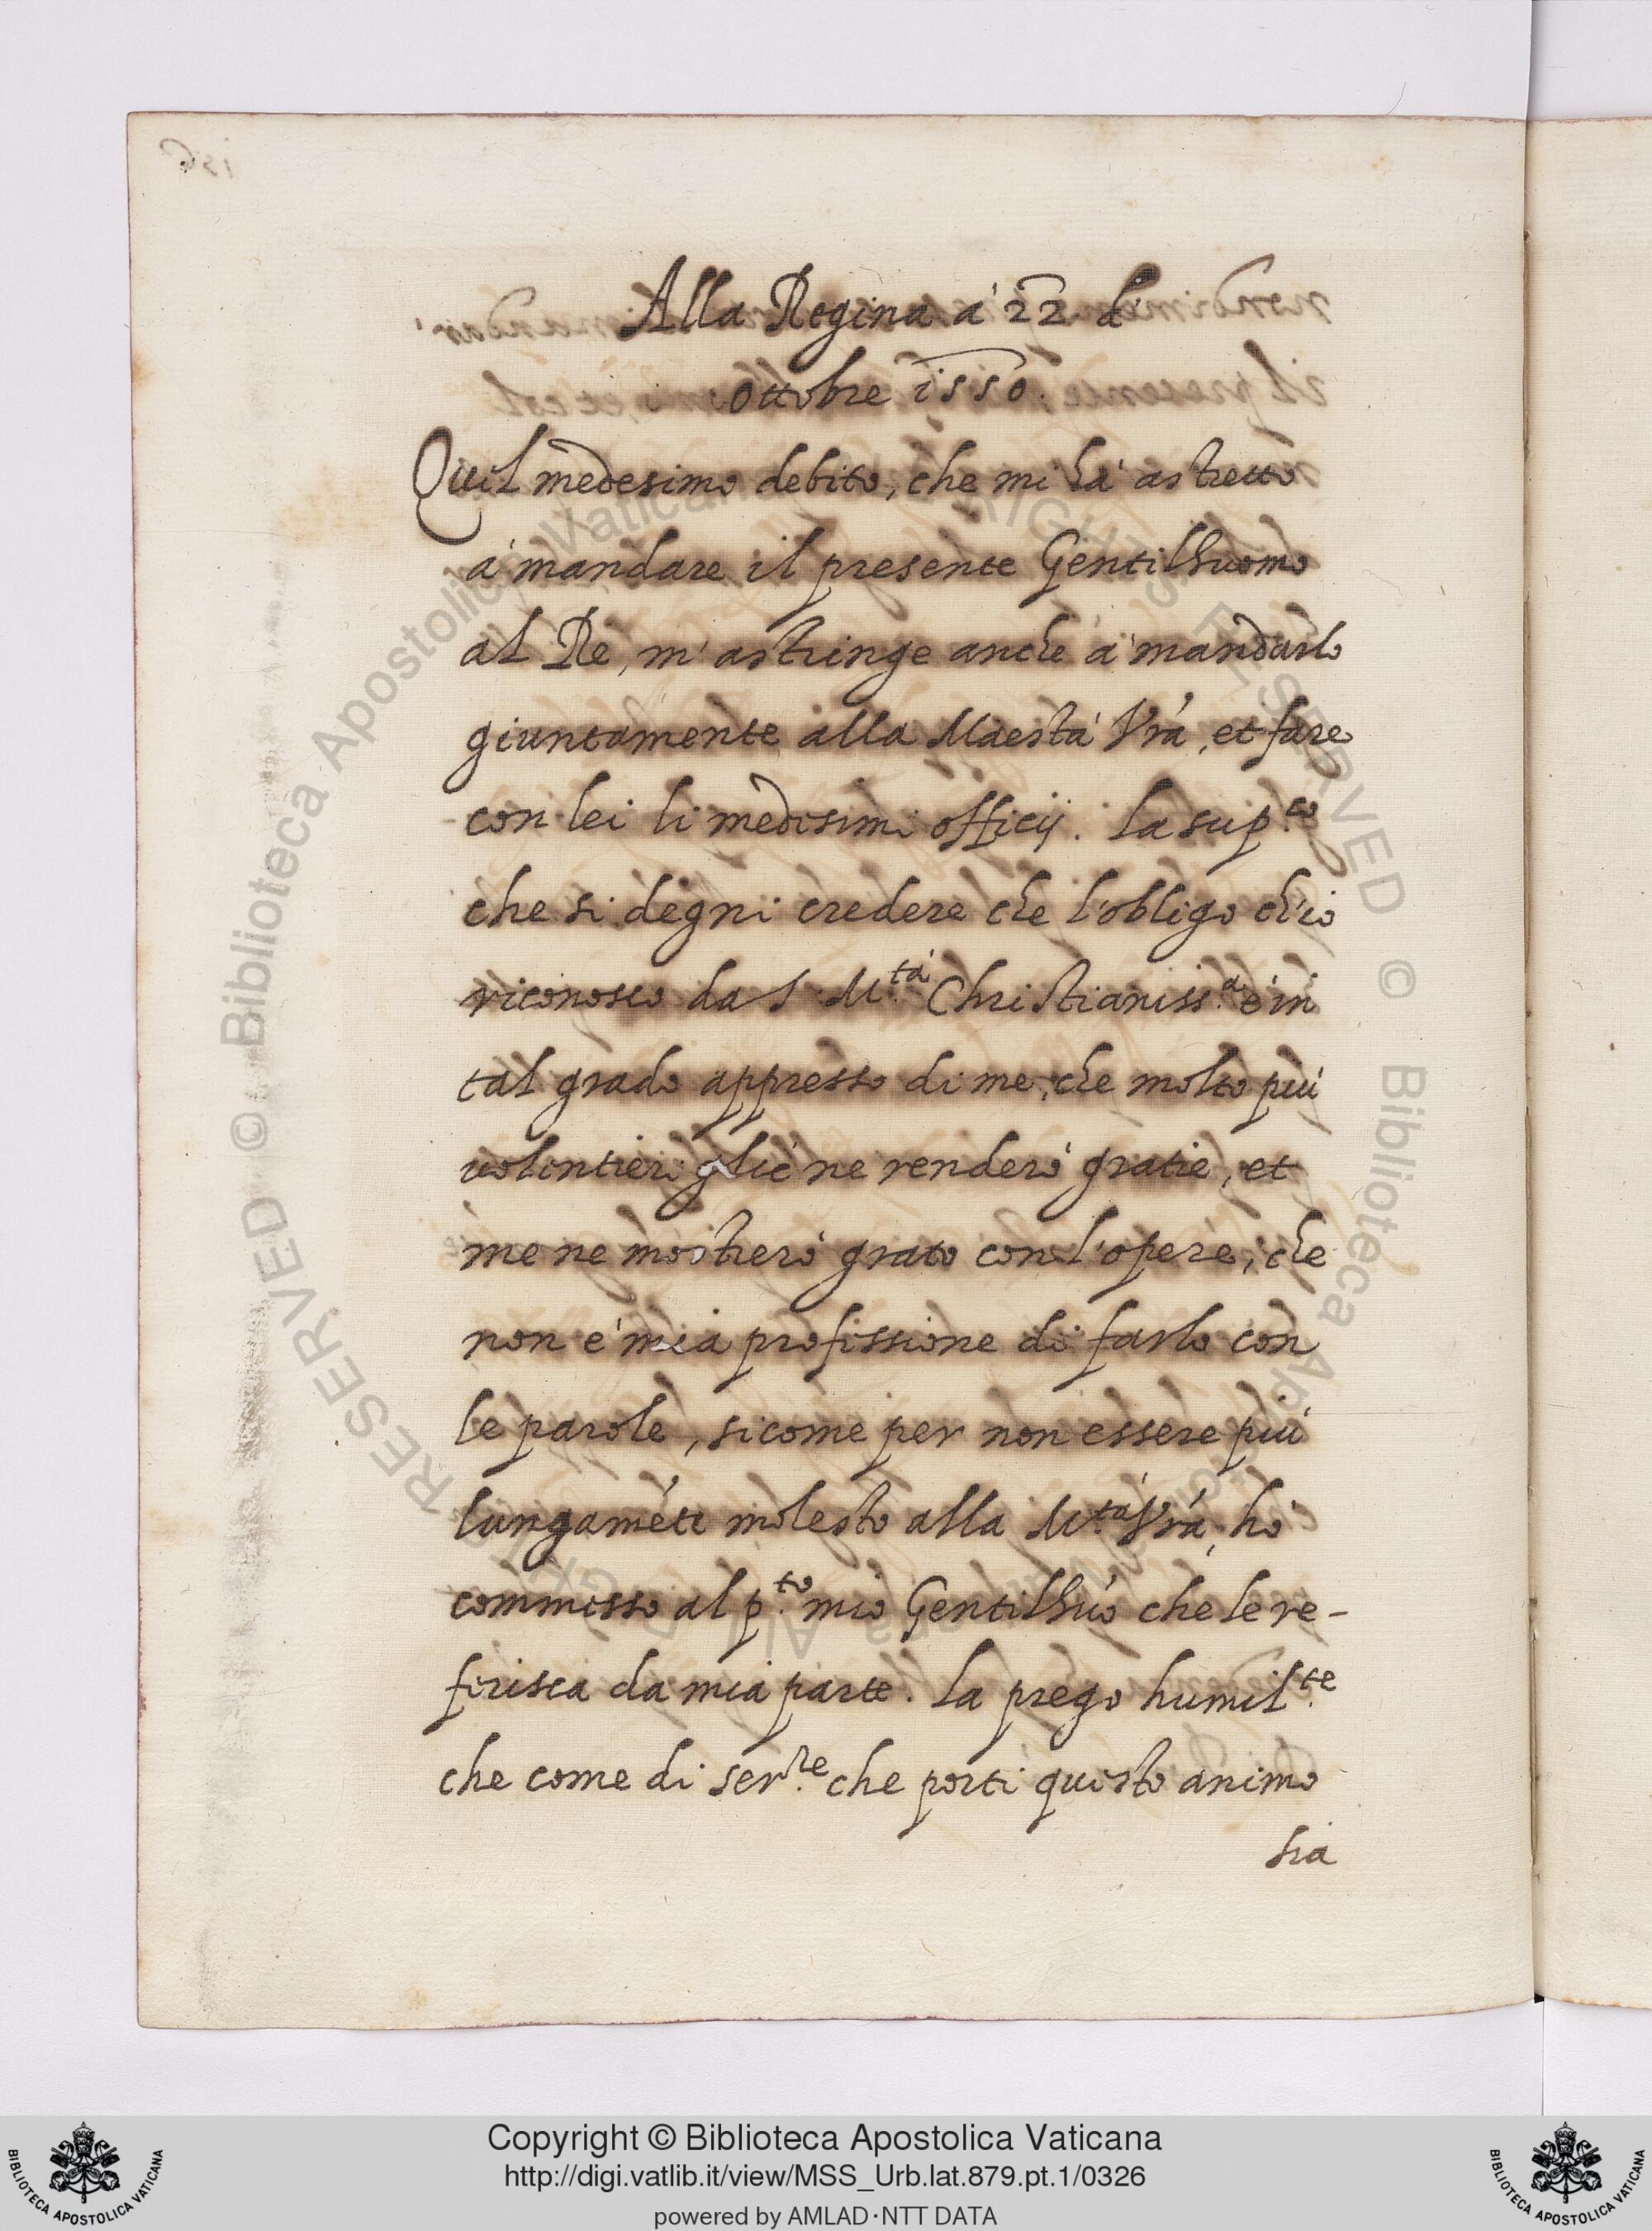 Alla Regina a' 22 d'
Ottobre 1550.
Quel medesimo debito, che mi hà astretto
a' mandare il presente Gentilhuomo
al Rè, m'astringe anche a' mandarlo
giuntamente alla Maestà Vrà, et fare
con lei li medesimi officij. La sup.co
che si degni credere che l'obligo ch'io
riconosco da S. M.tà Christianiss.a è in
tal grado appresso di me, che molto più
uolentieri gliè ne renderò gratie, et
me ne mostrerò grato con l'opere, che
non è mia professione di farlo con
le parole, si come per non essere più
lungamẽte molesto alla M.tà Vrà, hò
commesso al p.to mio Gentilhuõ che le re-
ferisca da mia parte. La prego humil.te
che come di ser.re che porti questo animo
sia
© Biblioteca Apostolica Vaticana ALL RIGHTS RESERVED © Biblioteca Apostolica Vaticana ALL RIGHTS RESERVED
Copyright © Biblioteca Apostolica Vaticana
http://digi.vatlib.it/view/MSS_Urb.lat.879.pt.1/0326
powered by AMLAD·NTT DATA
BIBLIOTECA APOSTOLICA VATICANA
BIBLIOTECA APOSTOLICA VATICANA